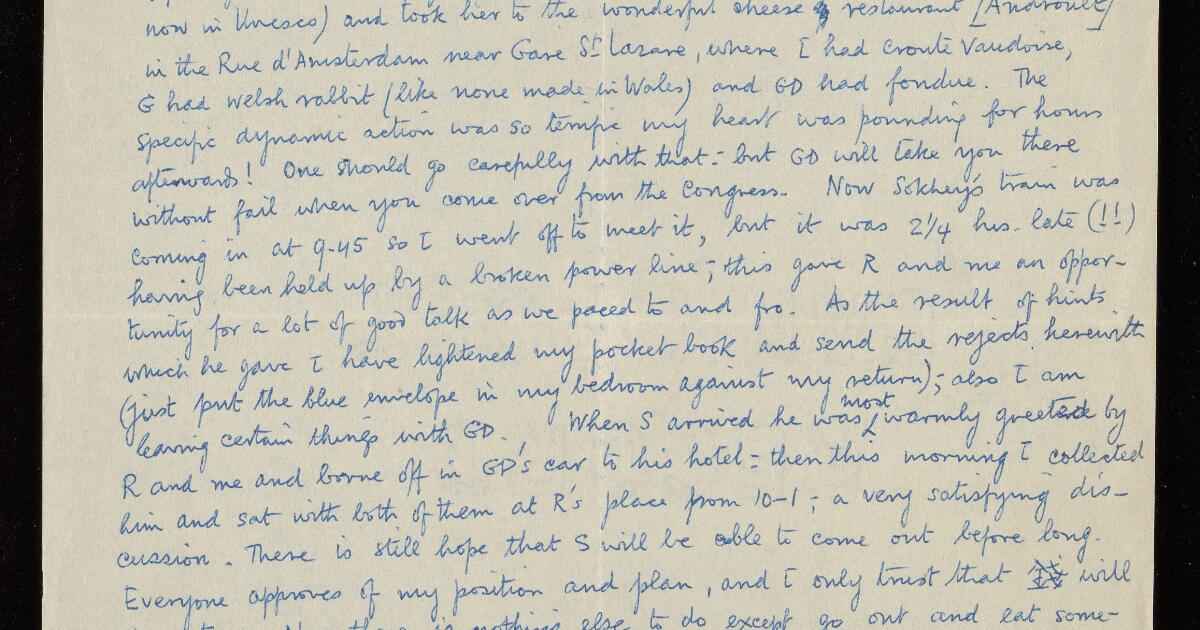 now in Unesco) and took her to the wonderful cheese restaurant [Androuet]
in the Rue d'Amsterdam near Gare St Lazare, where I had croute Vaudoise,
G had welsh rabbit (like none made in Wales) and GD had fondue. The
specific dynamic action was so terrific my heart was pounding for hours
afterwards! One should go carefully with that:- but GD will take you there
without fail when you come over from the Congress. Now Sokhey's train was
coming in at 9.45 so I went off to meet it, but it was 2¼ hrs. late (!!)
having been held up by a broken power line; this gave R and me an oppor-
tunity for a lot of good talk as we paced to and fro. As the result of hints
which he gave I have lightened my pocket book and send the rejects herewith
(just put the blue envelope in my bedroom against my return); also I am
leaving certain things with GD. When S arrived he was most warmly greeted by
R and me and borne off in GD's car to his hotel:- then this morning I collected
him and sat with both of them at R's place from 10-1; a very satisfying dis-
cussion. There is still hope that S will be able to come out before long.
Everyone approves of my position and plan, and I only trust that will
nothing else to do except go out and eat some-